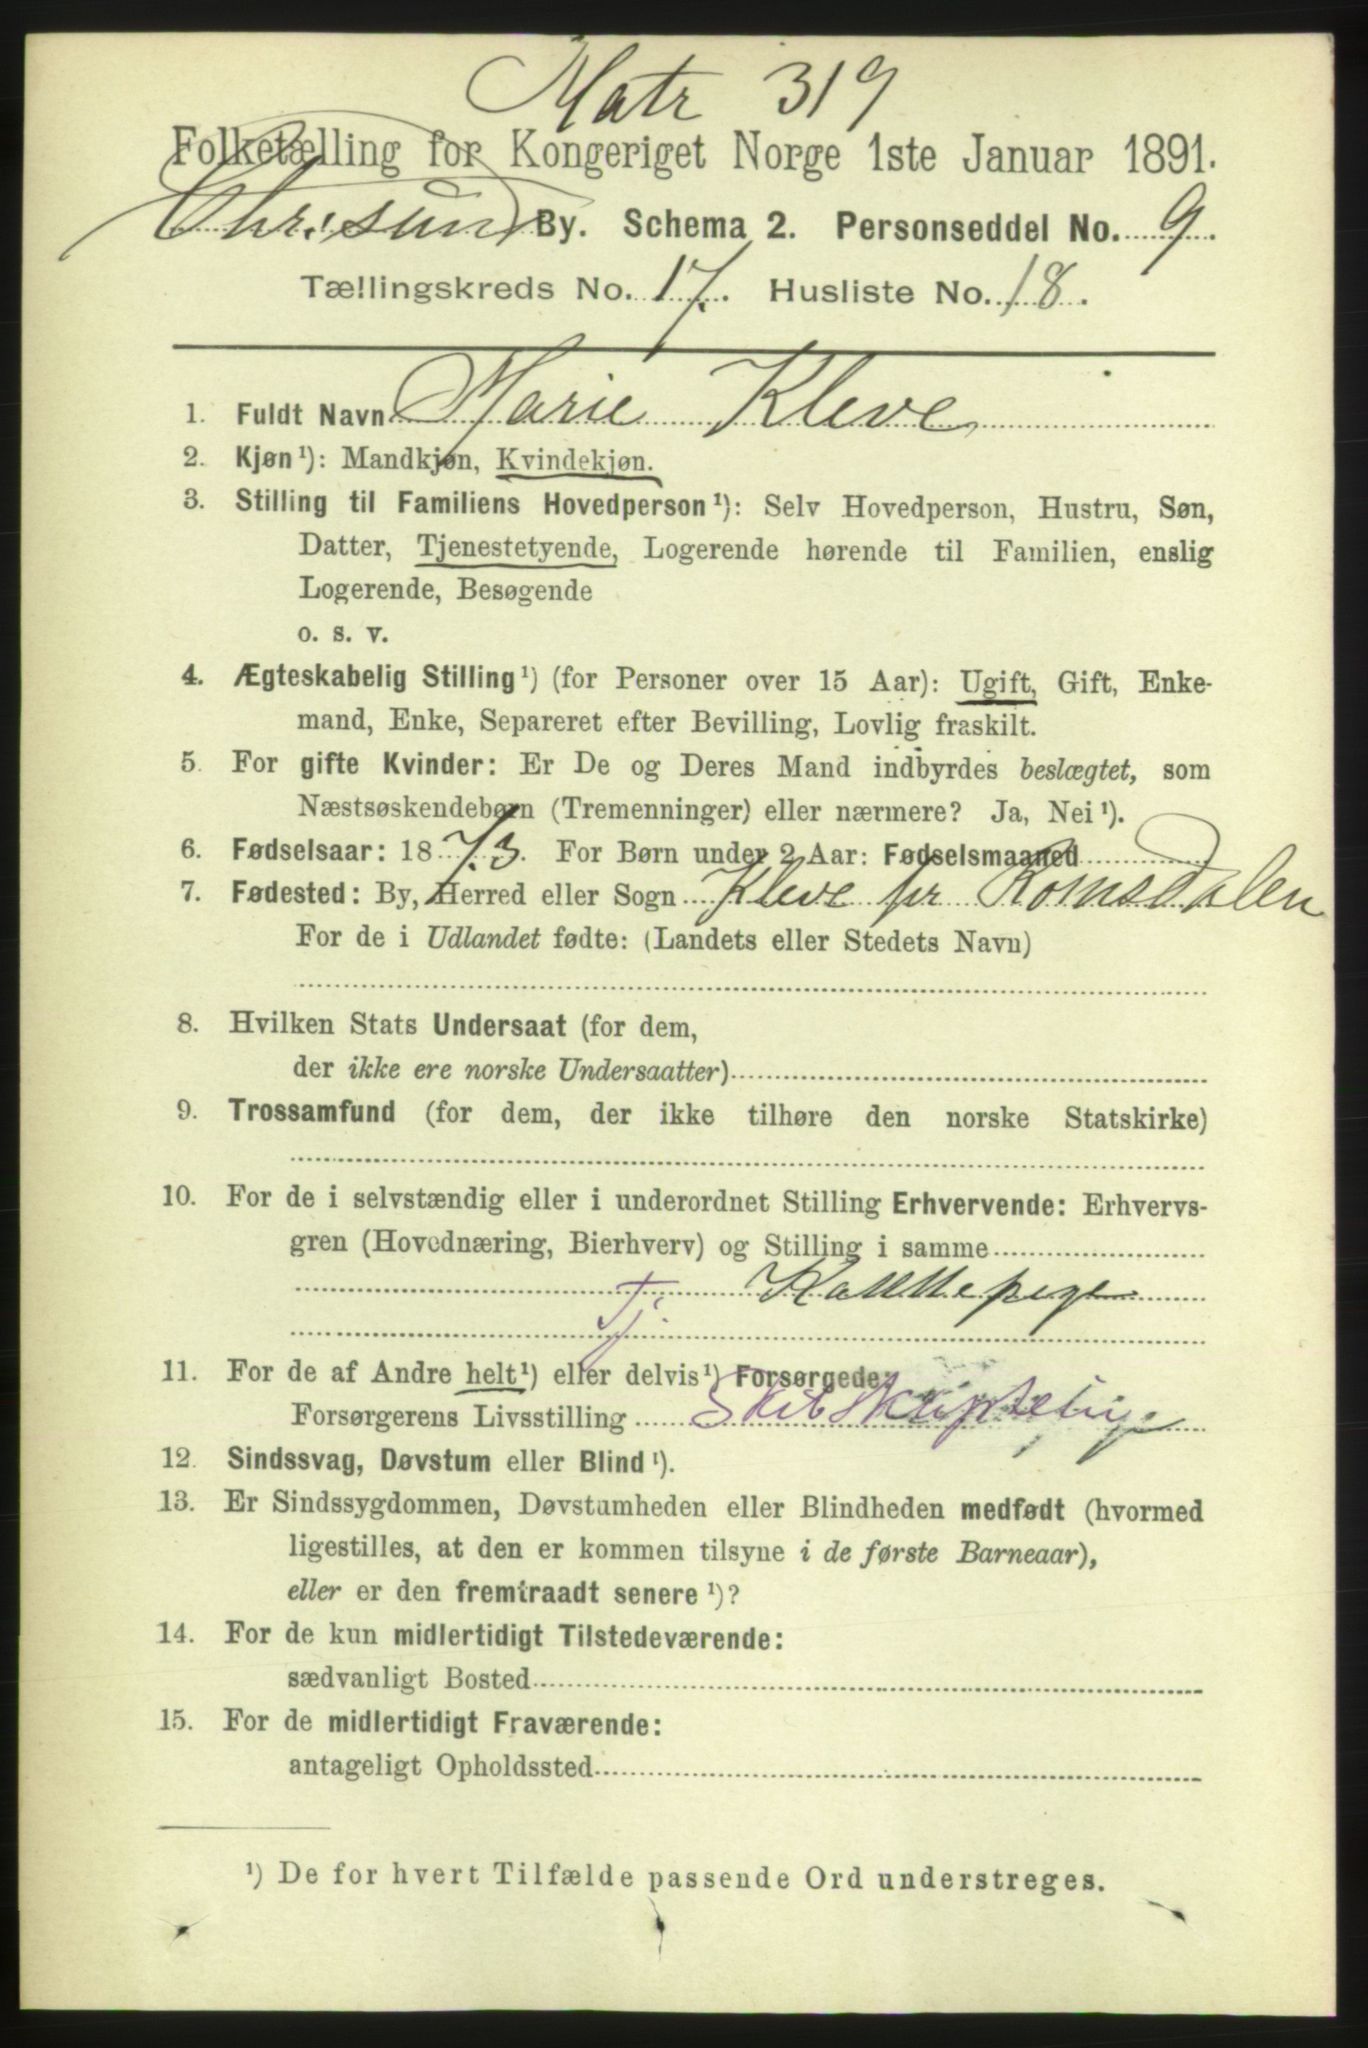 Matr 319
Folketælling for Kongeriget Norge 1ste Januar 1891.
Chr.sund By. Schema 2. Personseddel No. 9.
Tællingskreds No. 17. Husliste No. 18.
1. Fuldt Navn Marie Kleve
2. Kjøn¹): Mandkjøn, Kvindekjøn.
3. Stilling til Familiens Hovedperson¹): Selv Hovedperson, Hustru, Søn,
Datter, Tjenestetyende, Logerende hørende til Familien, enslig
Logerende, Besøgende
o. s. v.
4. Ægteskabelig Stilling¹) (for Personer over 15 Aar): Ugift, Gift, Enke-
mand, Enke, Separeret efter Bevilling, Lovlig fraskilt.
5. For gifte Kvinder: Er De og Deres Mand indbyrdes beslægtet, som
Næstsøskendebørn (Tremenninger) eller nærmere? Ja, Nei¹).
6. Fødselsaar: 1873. For Børn under 2 Aar: Fødselsmaaned
7. Fødested: By, Herred eller Sogn Kleve pr Romsdalen
For de i Udlandet fødte: (Landets eller Stedets Navn)
8. Hvilken Stats Undersaat (for dem,
der ikke ere norske Undersaatter)
9. Trossamfund (for dem, der ikke tilhøre den norske Statskirke)
10. For de i selvstændig eller i underordnet Stilling Erhvervende: Erhvervs-
gren (Hovednæring, Bierhverv) og Stilling i samme
Tj. Kokkepige
11. For de af Andre helt¹) eller delvis¹) Forsørgede:
Forsørgerens Livsstilling
12. Sindssvag, Døvstum eller Blind¹).
13. Er Sindssygdommen, Døvstumheden eller Blindheden medfødt (hvormed
ligestilles, at den er kommen tilsyne i de første Barneaar),
eller er den fremtraadt senere¹)?
14. For de kun midlertidigt Tilstedeværende:
sædvanligt Bosted
15. For de midlertidigt Fraværende:
antageligt Opholdssted
¹) De for hvert Tilfælde passende Ord understreges.